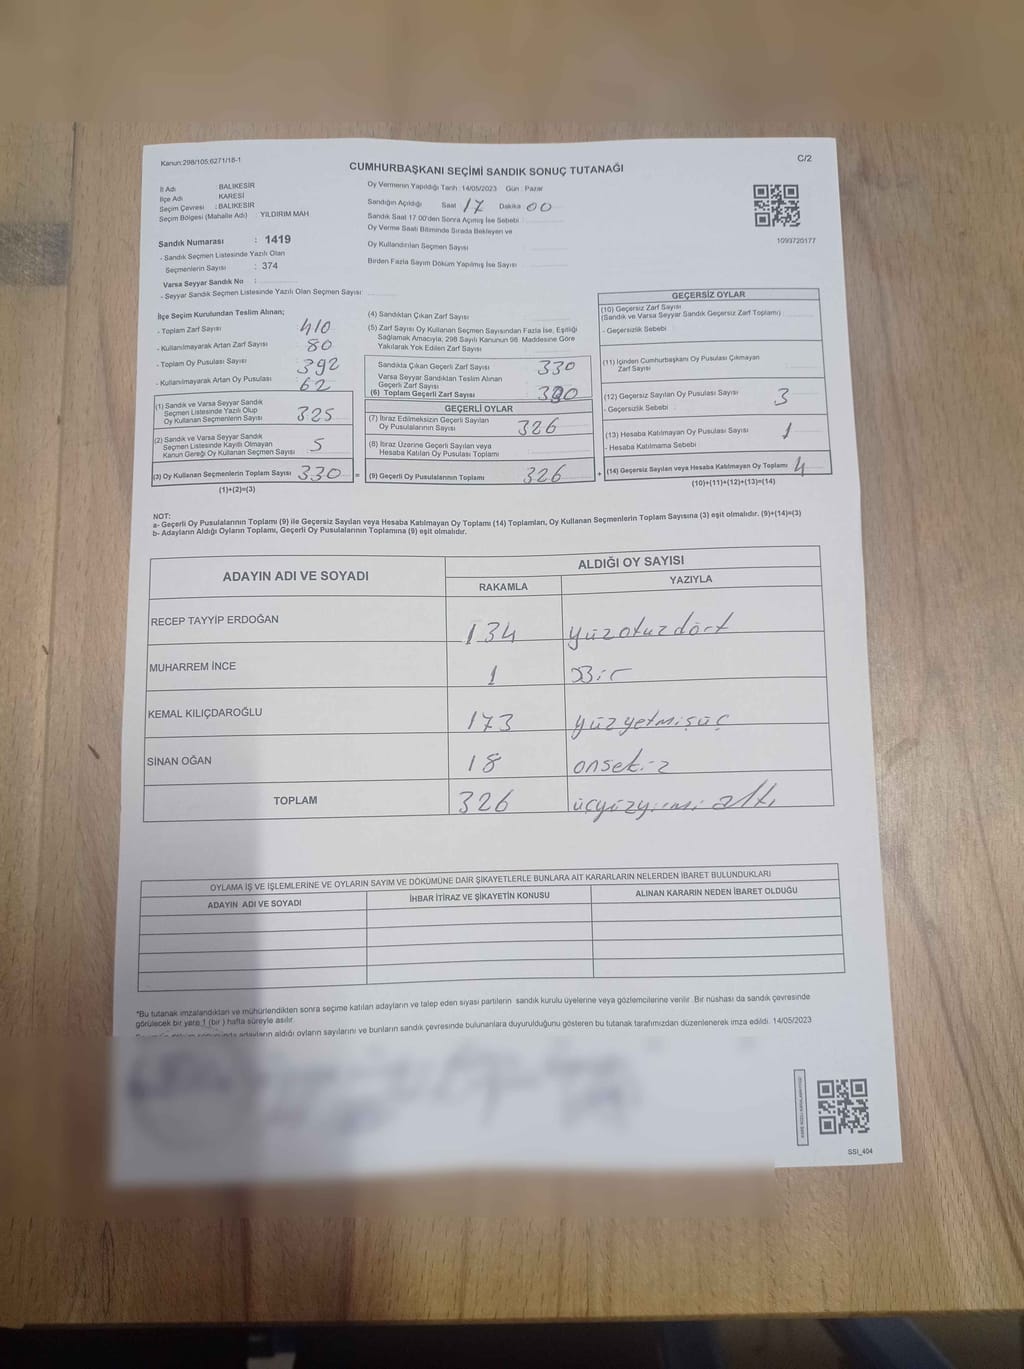 Kanun:298/105;6271/18-1
C/2
CUMHURBAŞKANI SEÇİMİ SANDIK SONUÇ TUTANAĞI
İl Adı BALIKESİR
İlçe Adı KARESİ
Seçim Çevresi : BALIKESİR
Seçim Bölgesi (Mahalle Adı) : YILDIRIM MAH.
Sandık Numarası : 1419
- Sandık Seçmen Listesinde Yazılı Olan
Seçmenlerin Sayısı : 374
Varsa Seyyar Sandık No :
- Seyyar Sandık Seçmen Listesinde Yazılı Olan Seçmen Sayısı:
Oy Vermenin Yapıldığı Tarih : 14/05/2023 Gün : Pazar
Sandığın Açıldığı Saat 17 Dakika 00
Sandık Saat 17:00'den Sonra Açılmış İse Sebebi :
Oy Verme Saati Bitiminde Sırada Bekleyen ve
Oy Kullandırılan Seçmen Sayısı
Birden Fazla Sayım Döküm Yapılmış İse Sayısı
1093720177
İlçe Seçim Kurulundan Teslim Alınan;
- Toplam Zarf Sayısı 410
- Kullanılmayarak Artan Zarf Sayısı 80
- Toplam Oy Pusulası Sayısı 392
- Kullanılmayarak Artan Oy Pusulası 62
(1) Sandık ve Varsa Seyyar Sandık
Seçmen Listesinde Yazılı Olup
Oy Kullanan Seçmenlerin Sayısı 325
(2) Sandık ve Varsa Seyyar Sandık
Seçmen Listesinde Kayıtlı Olmayan
Kanun Gereği Oy Kullanan Seçmen Sayısı 5
(3) Oy Kullanan Seçmenlerin Toplam Sayısı 330 =
(1)+(2)=(3)
(4) Sandıktan Çıkan Zarf Sayısı
(5) Zarf Sayısı Oy Kullanan Seçmen Sayısından Fazla İse, Eşitliği
Sağlamak Amacıyla; 298 Sayılı Kanunun 98. Maddesine Göre
Yakılarak Yok Edilen Zarf Sayısı
Sandıkta Çıkan Geçerli Zarf Sayısı 330
Varsa Seyyar Sandıktan Teslim Alınan
Geçerli Zarf Sayısı
(6) Toplam Geçerli Zarf Sayısı 330
GEÇERLİ OYLAR
(7) İtiraz Edilmeksizin Geçerli Sayılan
Oy Pusulalarının Sayısı 326
(8) İtiraz Üzerine Geçerli Sayılan veya
Hesaba Katılan Oy Pusulası Toplamı
(9) Geçerli Oy Pusulalarının Toplamı 326 +
GEÇERSİZ OYLAR
(10) Geçersiz Zarf Sayısı
(Sandık ve Varsa Seyyar Sandık Geçersiz Zarf Toplamı)
- Geçersizlik Sebebi :
(11) İçinden Cumhurbaşkanı Oy Pusulası Çıkmayan
Zarf Sayısı
(12) Geçersiz Sayılan Oy Pusulası Sayısı 3
- Geçersizlik Sebebi :
(13) Hesaba Katılmayan Oy Pusulası Sayısı 1
- Hesaba Katılmama Sebebi :
(14) Geçersiz Sayılan veya Hesaba Katılmayan Oy Toplamı 4
(10)+(11)+(12)+(13)=(14)
NOT:
a- Geçerli Oy Pusulalarının Toplamı (9) ile Geçersiz Sayılan veya Hesaba Katılmayan Oy Toplamı (14) Toplamları, Oy Kullanan Seçmenlerin Toplam Sayısına (3) eşit olmalıdır. (9)+(14)=(3)
b- Adayların Aldığı Oyların Toplamı, Geçerli Oy Pusulalarının Toplamına (9) eşit olmalıdır.
ADAYIN ADI VE SOYADI
ALDIĞI OY SAYISI
RAKAMLA YAZIYLA
RECEP TAYYİP ERDOĞAN 134 yüzotuzdört
MUHARREM İNCE 1 Bir
KEMAL KILIÇDAROĞLU 173 yüzyetmişüç
SİNAN OĞAN 18 onsekiz
TOPLAM 326 üçyüzyirmi altı
OYLAMA İŞ VE İŞLEMLERİNE VE OYLARIN SAYIM VE DÖKÜMÜNE DAİR ŞİKAYETLERLE BUNLARA AİT KARARLARIN NELERDEN İBARET BULUNDUKLARI
ADAYIN ADI VE SOYADI İHBAR İTİRAZ VE ŞİKAYETİN KONUSU ALINAN KARARIN NEDEN İBARET OLDUĞU
*Bu tutanak imzalandıktan ve mühürlendikten sonra seçime katılan adayların ve talep eden siyasi partilerin sandık kurulu üyelerine veya gözlemcilerine verilir. Bir nüshası da sandık çevresinde
görülecek bir yere 1 (bir ) hafta süreyle asılır.
adayların aldığı oyların sayılarını ve bunların sandık çevresinde bulunanlara duyurulduğunu gösteren bu tutanak tarafımızdan düzenlenerek imza edildi. 14/05/2023
SSI_404